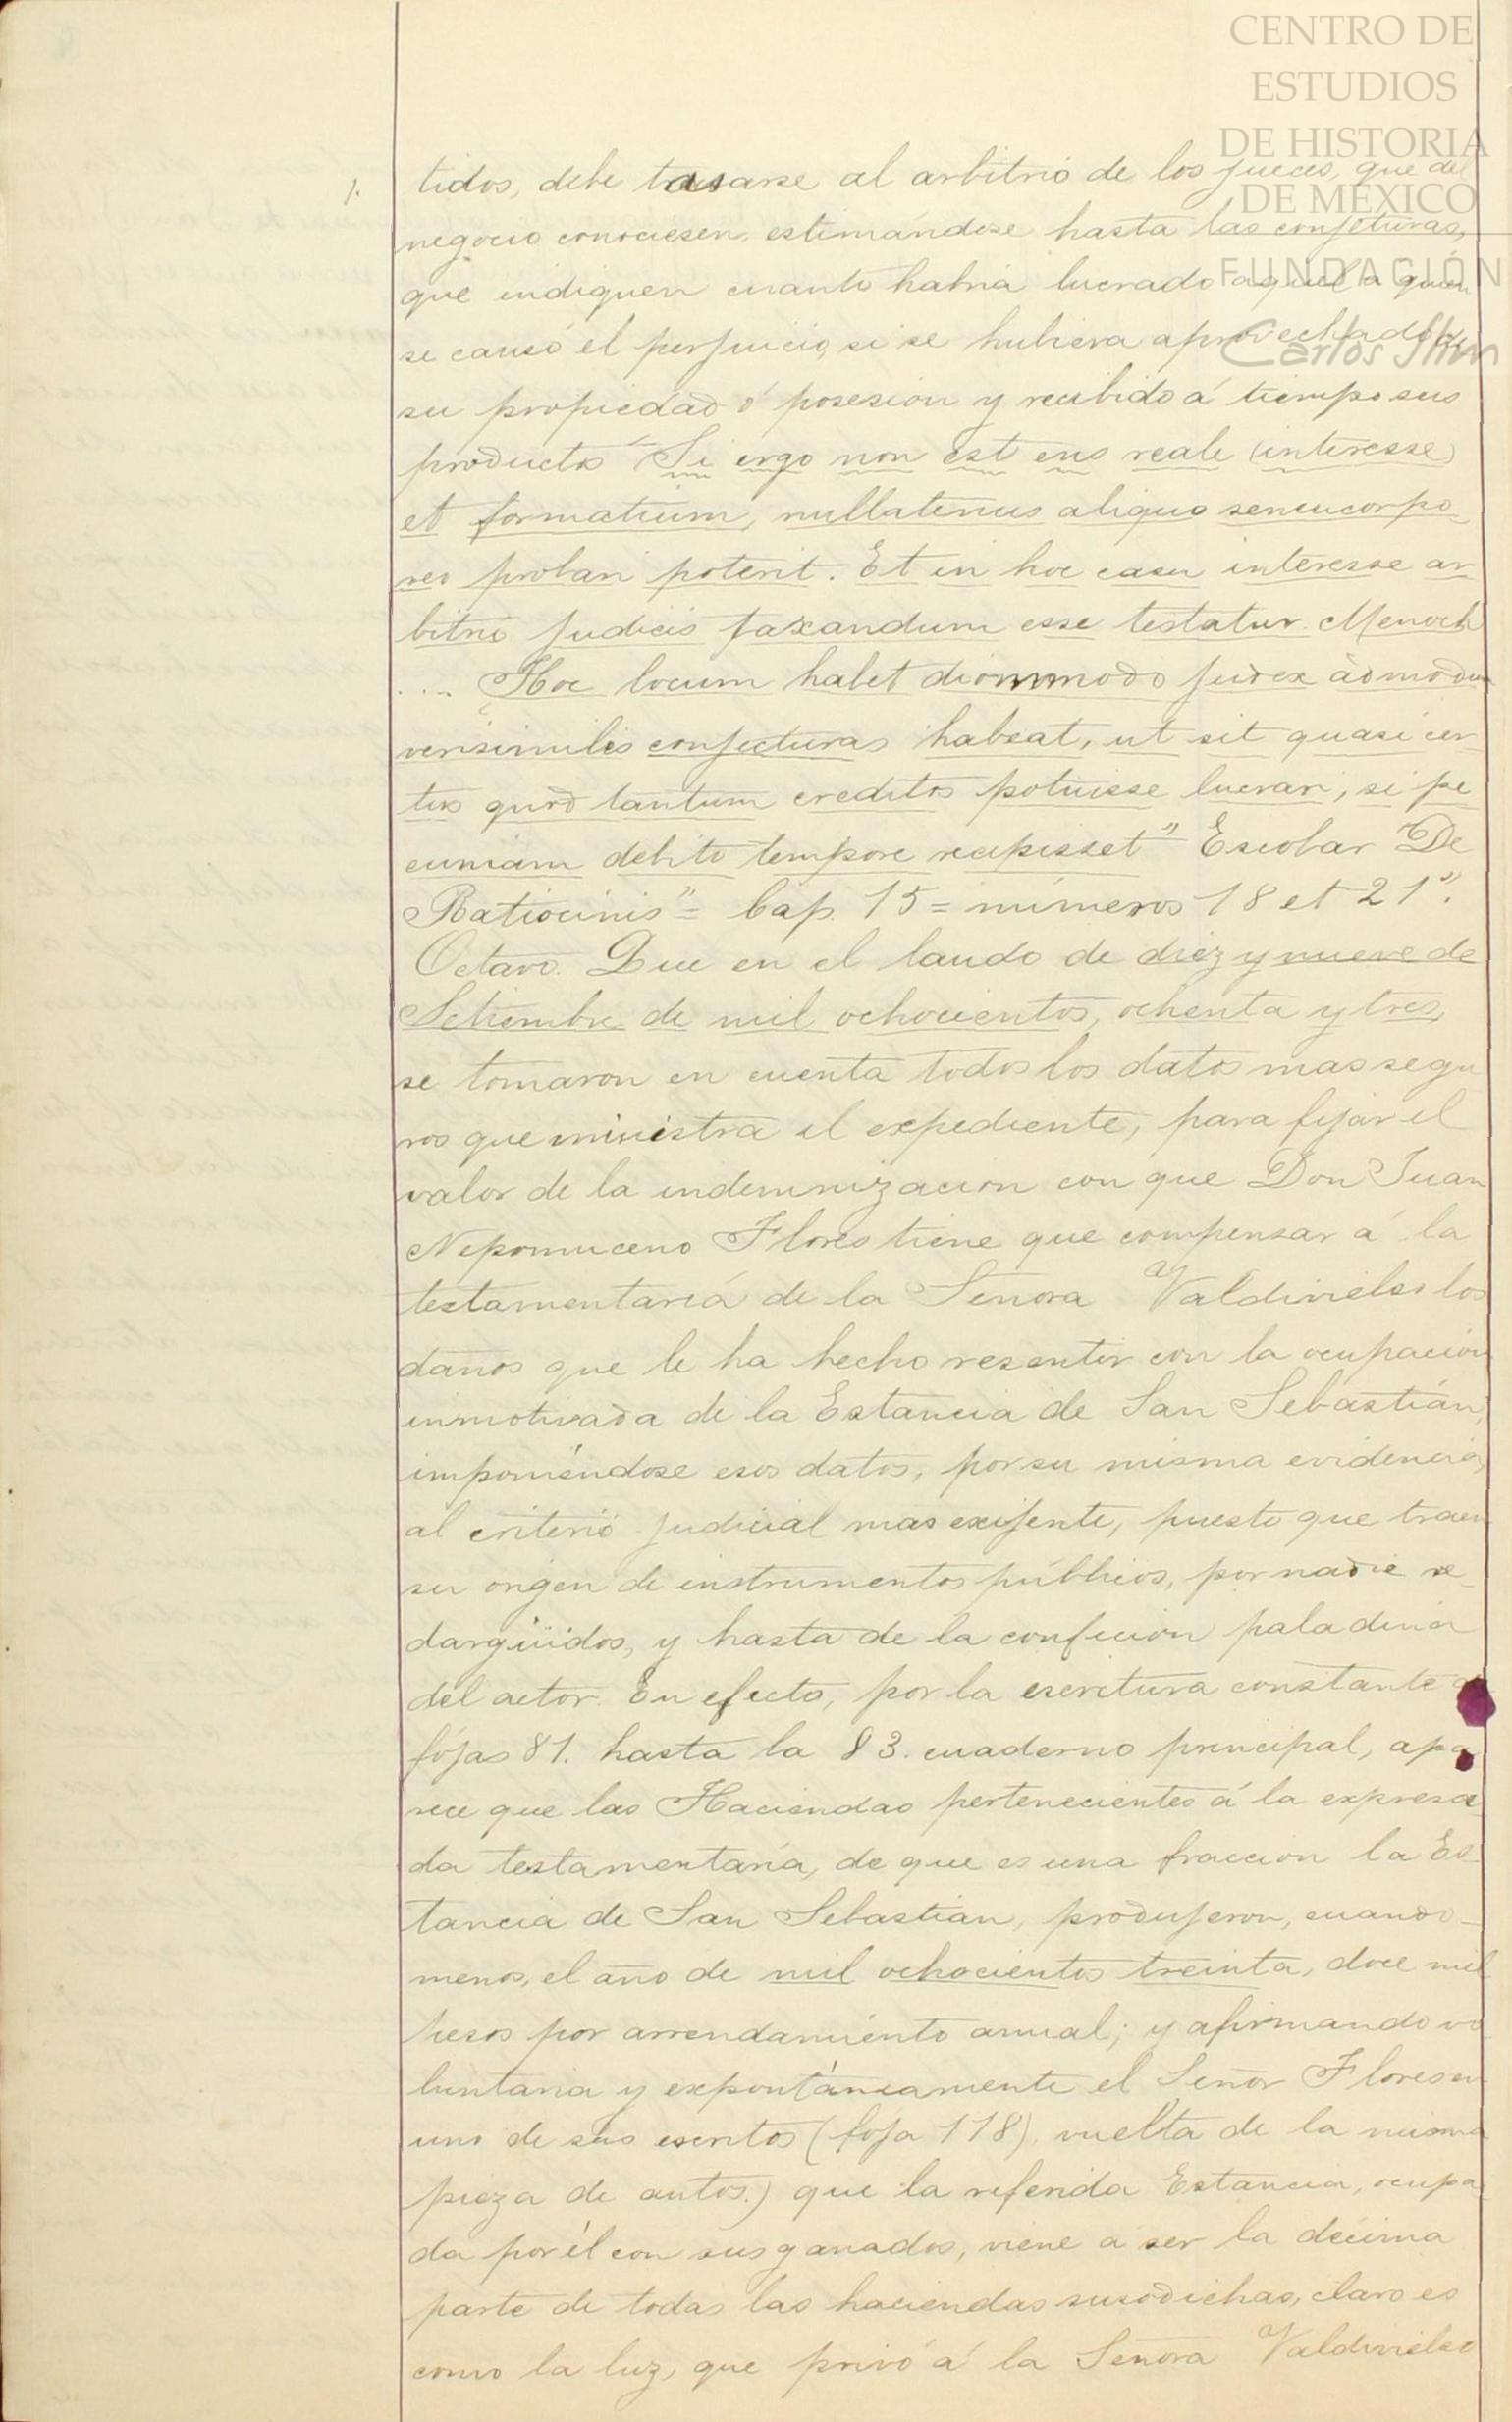 CENTRO DE
ESTUDIOS
DE HISTORIA
DE MÉXICO
FUNDACIÓN
Carlos Slim
1. tidos, debe tasarse al arbitrio de los jueces, que del
negocio conociesen, estimándose hasta las conjeturas,
que indiquen cuanto habria lucrado aquel a quien
se causó el perjuicio, si se hubiera aprovechado de
su propiedad ó posesion y recibido á tiempo sus
productos "Si ergo non est ens reale (interesse)
et formatium, nullatenus aliquo sencucorpo-
reo probari poterit. Et in hoc casu interesse ar
bitrio judicis taxandum esse testatur Menoch
.... Hoc locum habet diommodo judex admodum
verisimiles conjecturas habeat, ut sit quasi cer
tus quod tantum creditos potuisse lucrari, si pe
cuniam debito tempore recipisset" Escobar De
Ratiocinis" = Cap. 15 = números 18 et 21".
Octavo. Que en el laudo de diez y nueve de
Setiembre de mil ochocientos, ochenta y tres,
se tomaron en cuenta todos los datos mas segu
ros que ministra el expediente, para fijar el
valor de la indemnizacion con que Don Juan
Nepomuceno Flores tiene que compensar á la
testamentaría de la Señora Valdivielso los
daños que le ha hecho resentir con la ocupacion
inmotivada de la Estancia de San Sebastián,
imponiéndose esos datos, por su misma evidencia,
al criterio judicial mas exijente, puesto que traen
su origen de instrumentos públicos, por nadie re-
dargüidos, y hasta de la confecion paladina
del actor. En efecto, por la escritura constante á
fójas 81. hasta la 83. cuaderno principal, apa
rece que las Haciendas pertenecientes á la expresa
da testamentaría, de que es una fraccion la Es-
tancia de San Sebastian, produjeron, cuando-
menos, el año de mil ochocientos treinta, doce mil
pesos por arrendamiento anual; y afirmando vo
luntaria y expontáneamente el Señor Flores en
uno de sus escritos (foja 118). vuelta de la misma
pieza de autos.) que la referida Estancia, ocupa
da por él con sus ganados, viene á ser la décima
parte de todas las haciendas susodichas, claro es
como la luz, que privó á la Señora Valdivielso